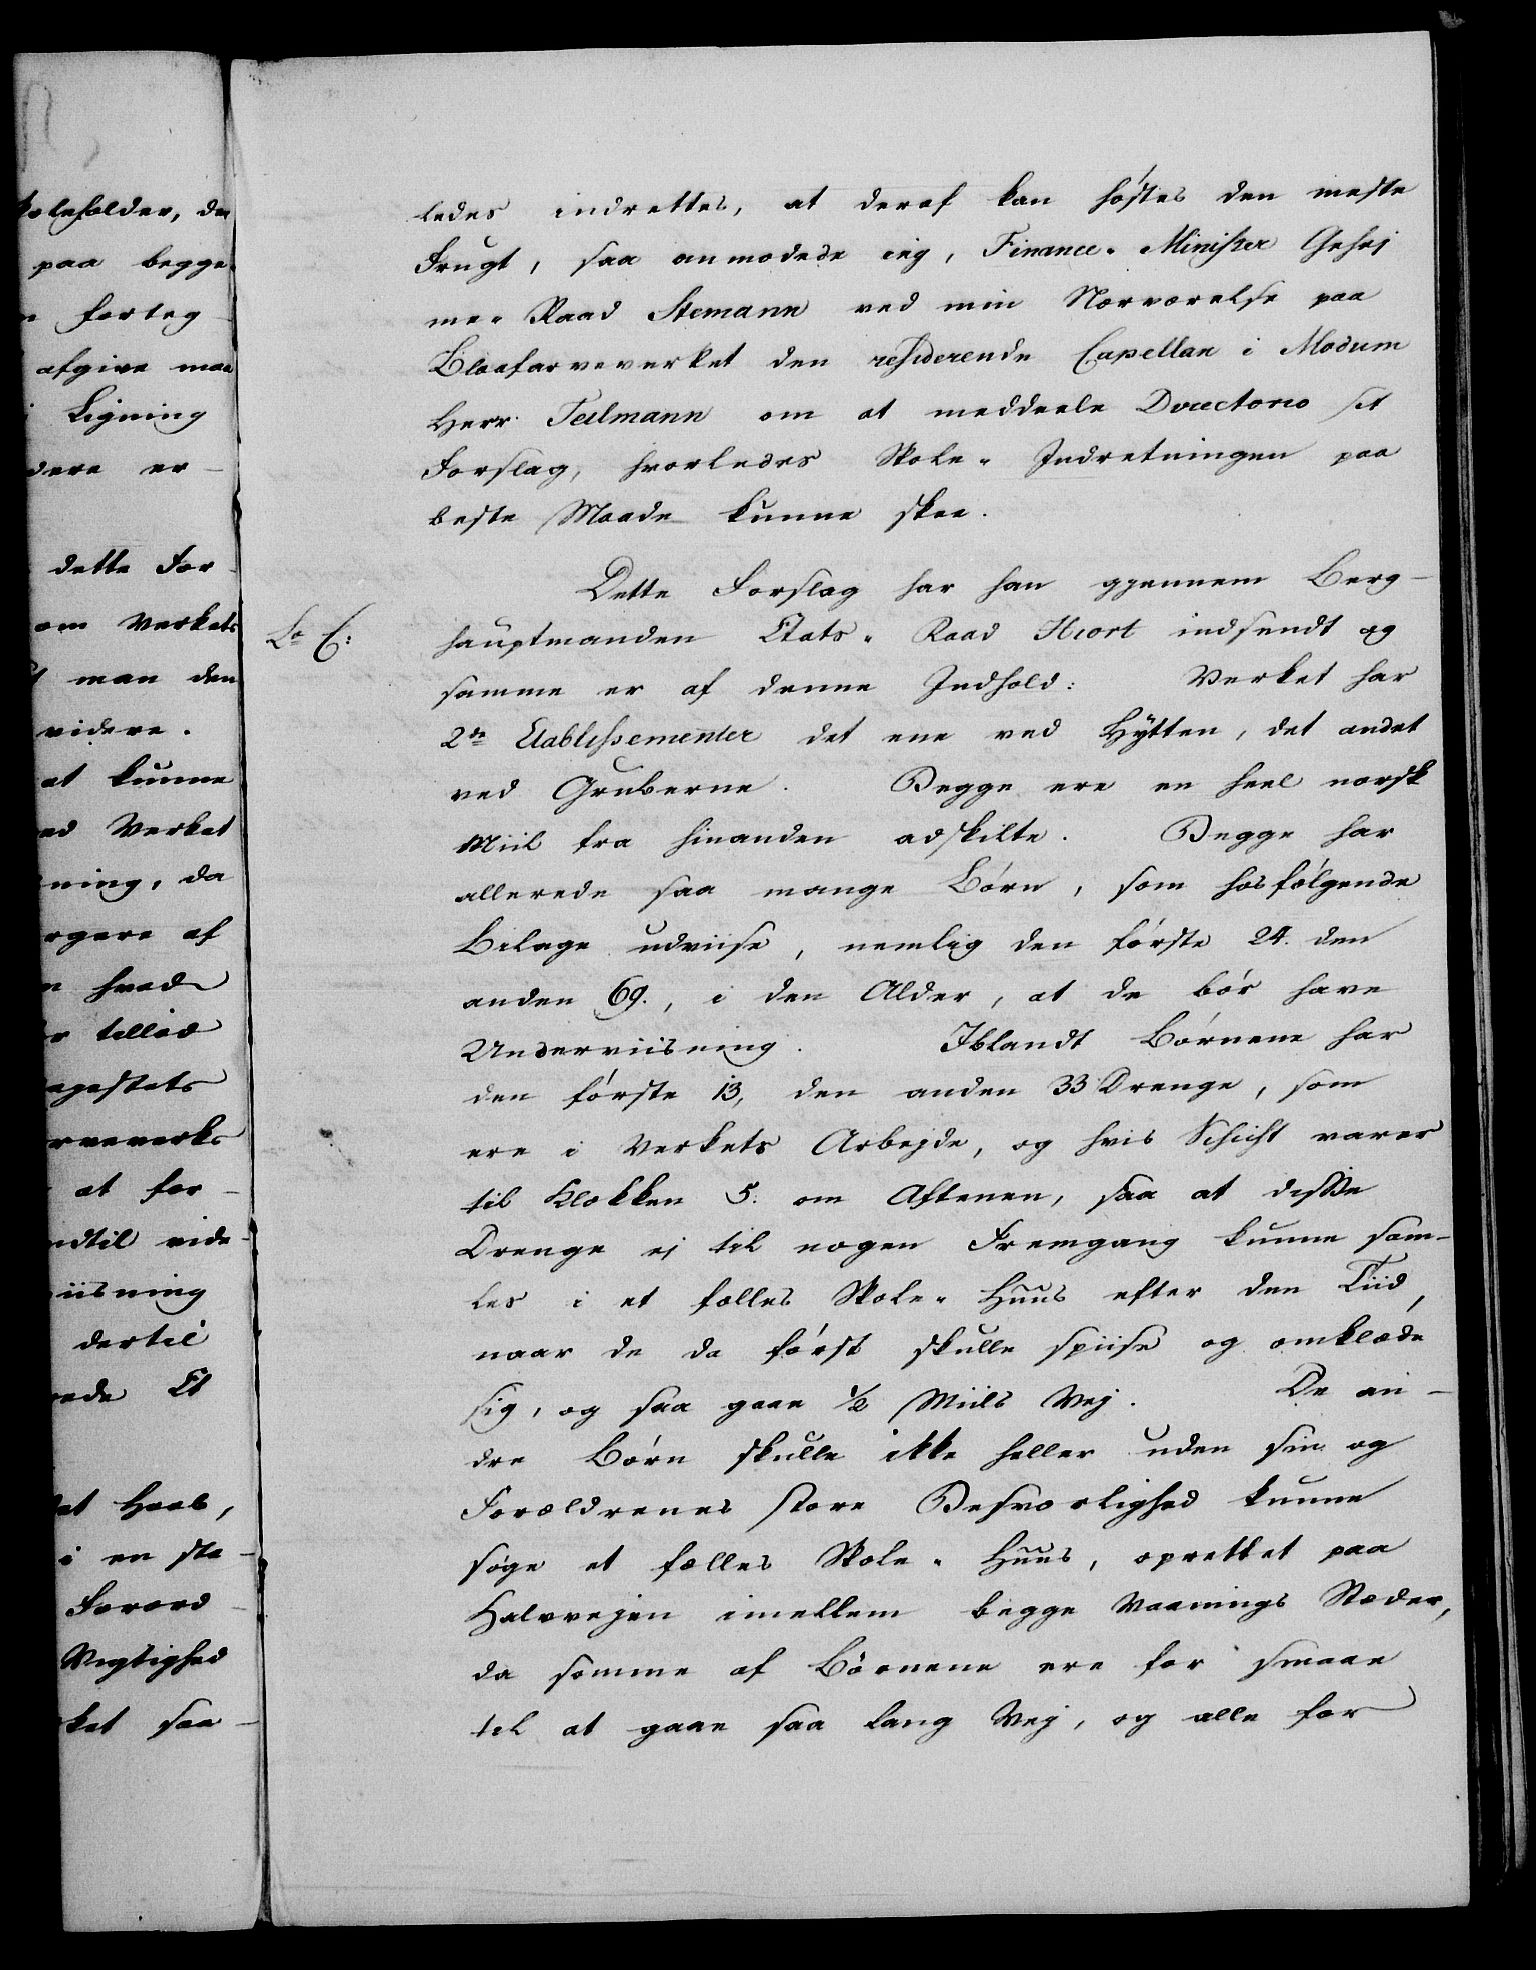 ledes indrettes, at deraf kan høstes den meste
Frugt, saa anmodede ieg, Finance-Minister Gehej
me-Raad Stemann ved min Nærværelse paa
Blaafarveverket den residerende Capellan i Modum
Herr Teilmann om at meddeele Directorio sit
Forslag, hvorledes Skole-Indretningen paa
beste Maade kunne skee.
Dette Forslag har han gjennem Berg-
Lra C:
hauptmanden Etats-Raad Hiort indsendt og
samme er af denne Indhold: Verket har
2de Etablissementer det ene ved Hytten, det andet
ved Gruberne. Begge ere en heel norsk
Miil fra hinanden adskilte. Begge har
allerede saa mange Børn, som hosfølgende
Bilage udviise, nemlig den første 24. den
anden 69., i den Alder, at de bør have
Underviisning. Iblandt Børnene har
den første 13, den anden 33 Drenge, som
ere i Verkets Arbejde, og hvis Schicht varer
til Klokken 5. om Aftenen, saa at disse
Drenge ej til nogen Fremgang kunne sam-
les i et fælles Skole-Huus efter den Tiid,
naar de da først skulle spiise og omklæde
sig, og saa gaae 1/2 Miils Vej. De an-
dre Børn skulle ikke heller uden sin og
Forældrenes store Besværlighed kunne
søge et fælles Skole-Huus, oprettet paa
Halvvejen imellem begge Vaanings Stæder,
da somme af Børnene ere for smaae
til at gaae saa lang Vej, og alle for
skoleholder, der
paa begge
forteg-
afgive maa
Ligning
dere er-
dette For-
om Verkets
man den
videre.
at kunne
ed Verket
ning, da
rgere af
hvad
tillod
rveverks
at for-
ndtil vide-
iisning
dertil
Et
Haab,
i en sta-
Forord-
Vigtighed
ket saa-